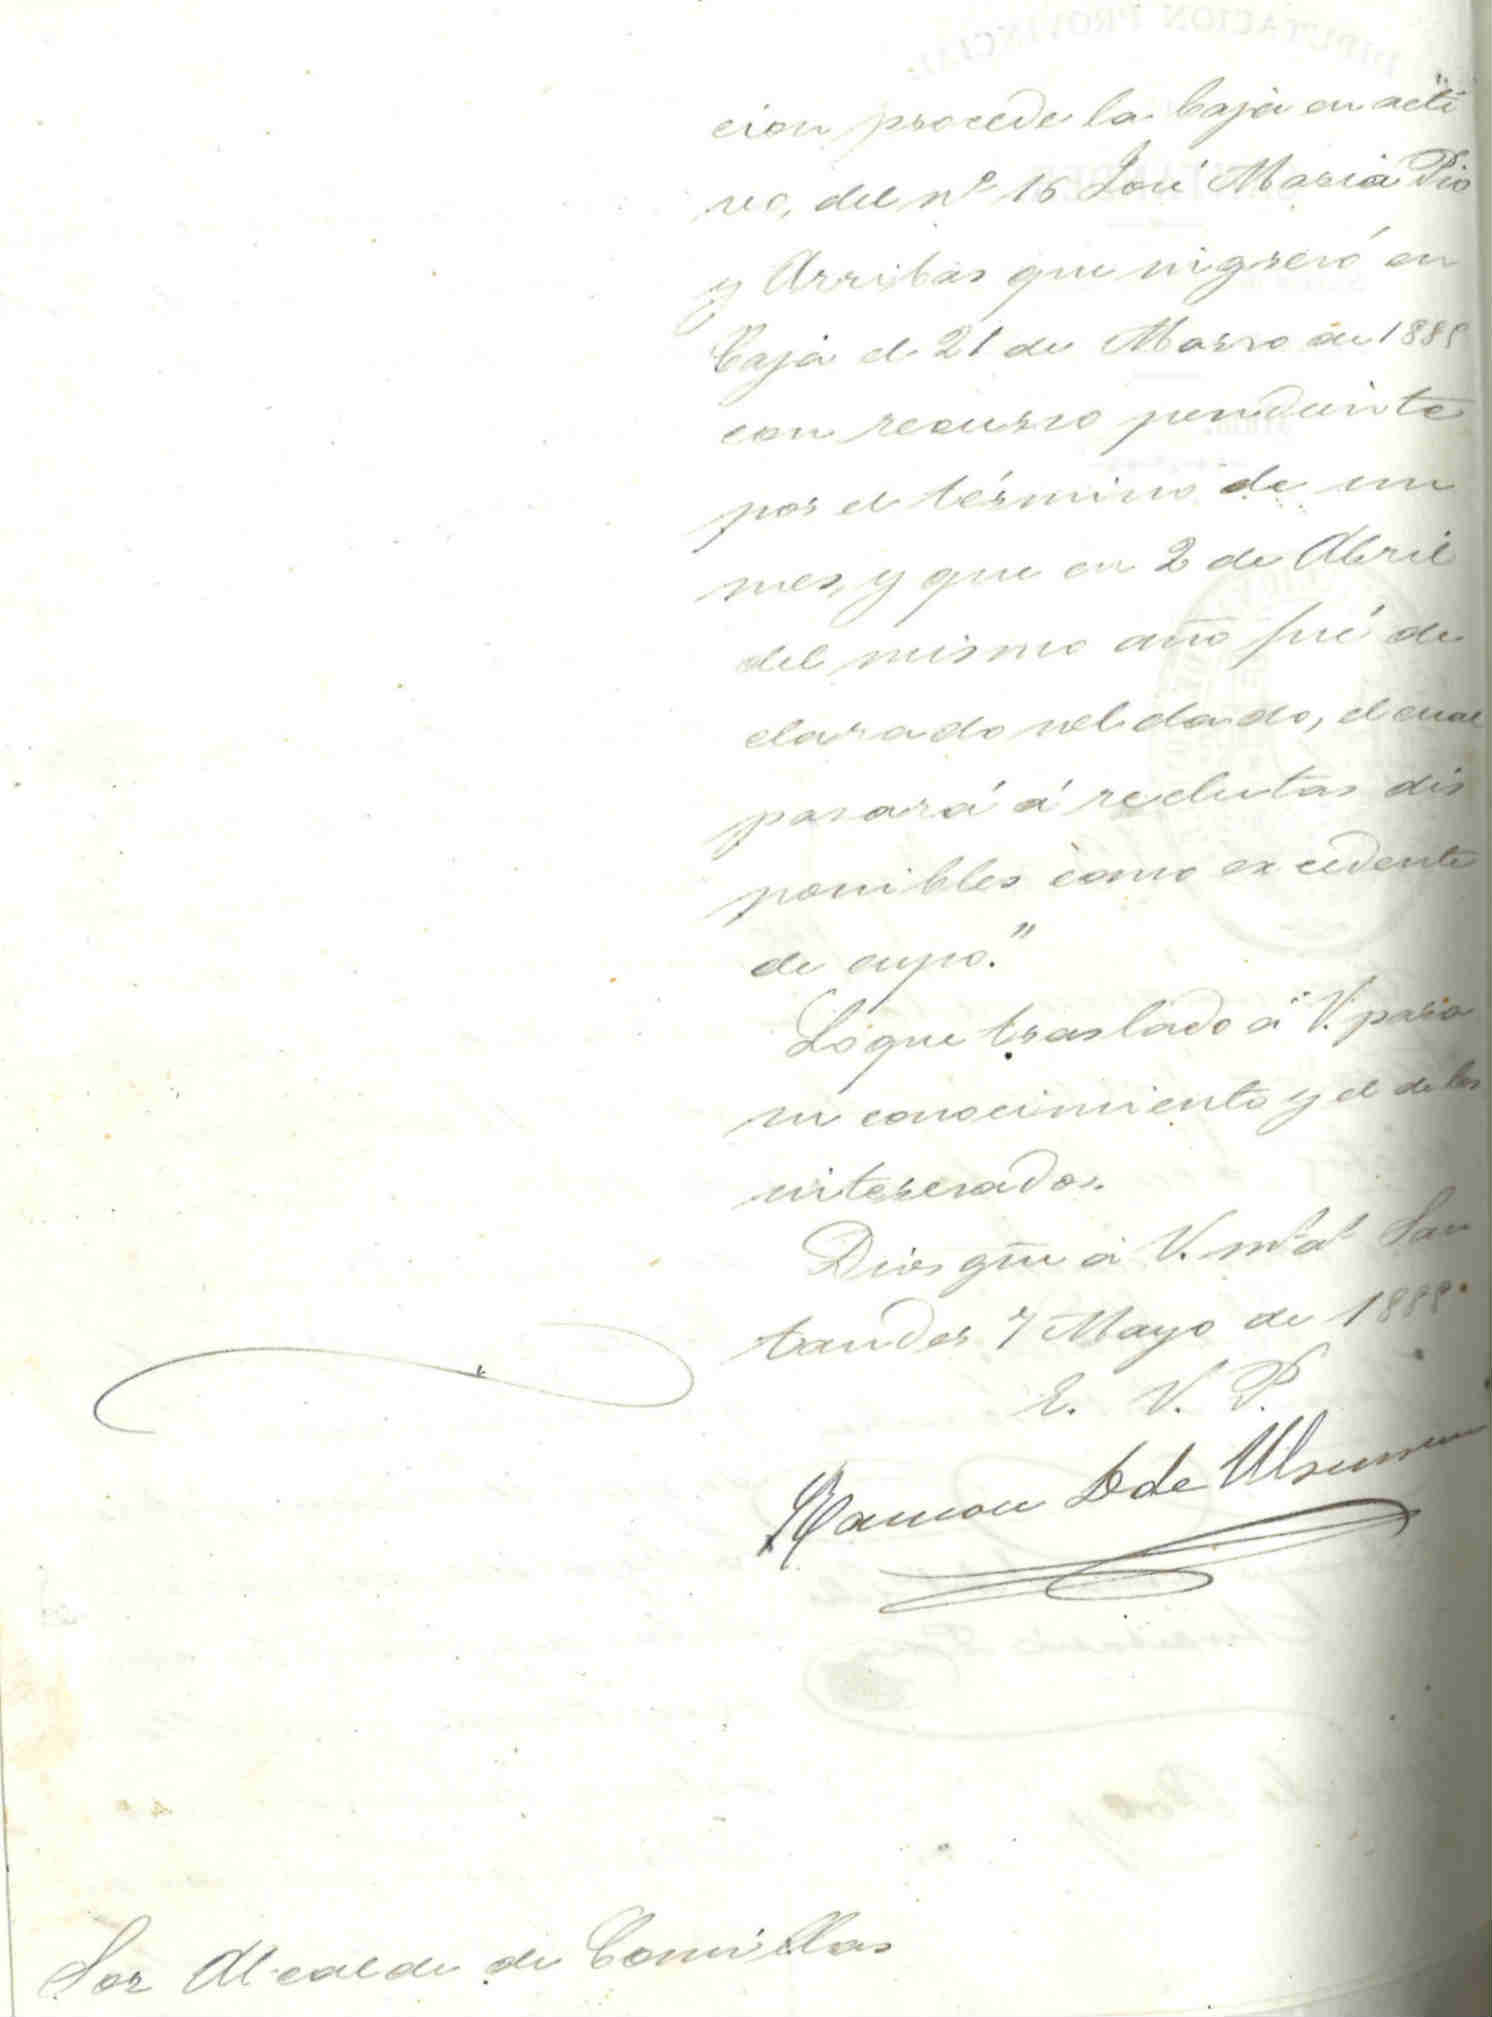 cion procede la baja en acti
vo, del nº 16 José Maria Pio
y Arribas que ingresó en
Caja el 21 de Marzo de 1889
con recurso pendiente
por el término de un
mes, y que en 2 de Abril
del mismo año fué de
clarado soldado, el cual
pasará á reclutas dis
ponibles como excedente
de cupo."
Lo que traslado á V. para
su conocimiento y el de los
interesados.
Dios gue á V. ms as San
tander 7 Mayo de 1889.
E. V. P.
Ramon de
Sor Alcalde de Comillas
DIPUTACION PROVINCIAL